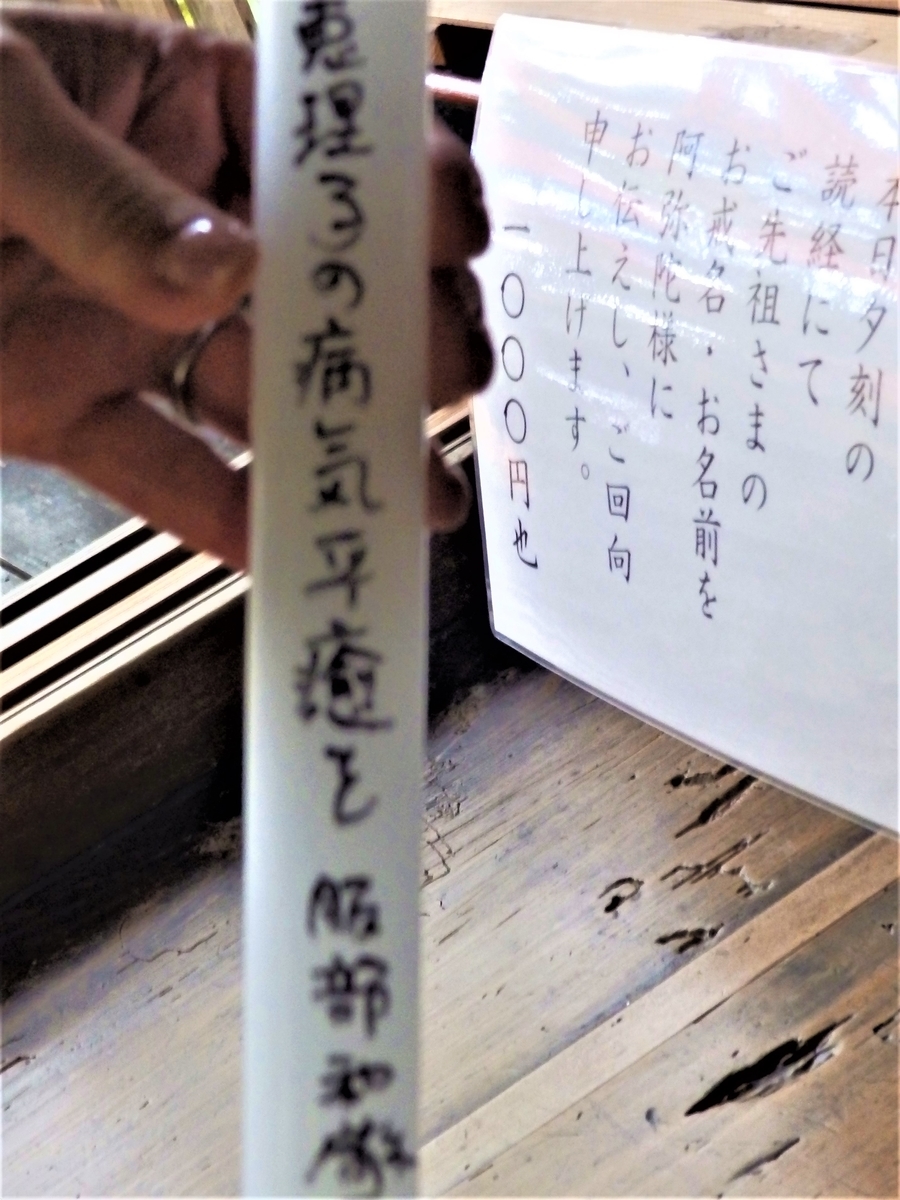 本日夕刻の
読経にて
ご先祖さまの
お戒名・お名前を
阿弥陀様に
お伝えし、ご回向
申し上げます。
一〇〇〇円也
恵理子の病気平癒を 服部和敬